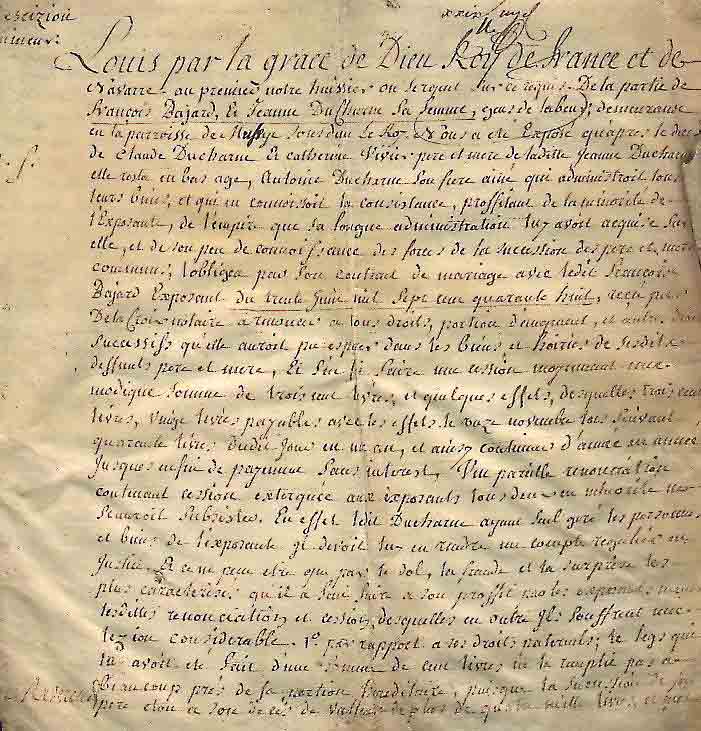 Louis par la grace de Dieu Roy de france et de
Navarre au premier notre huissier ou sergent sur ce requis. De la partie
francois Bajard, Et Jeanne DuCharne sa femme, gens de labeur, demeurans
en la parroisse de sous dun le Roy. Nous a eté Exposé qu'apres le deces
de Claude Ducharne Et catherine Vivier pere et mere de ladite Jeanne Ducharne
elle resta en bas age, Antoine Ducharne son frere ainé qui administroit tous
leurs biens, et qui en connoissoit la consistance, proffitant de la minorité de
l'Exposante, de l'empire que sa longue administration luy avoit acquise sur
elle, et de son peu de connoissance des forces de la succession des pere et mere
communs, l'obligea par son contrat de mariage avec ledit francois
Bajard Exposant du trente Juin mil sept cent quarante huit, reçu par
Delacroix notaire a renoncer a tous droits, portion et autres
successifs qu'elle auroit pu esperer dans les biens et hoiries de sesdits
deffunts pere et mere, Et s'en fit faire une cession moyennant une
modique somme de trois cent livres, et quelques effets, desquelles trois cent
livres, vingt livres payables avec les effets le onze novembre lors suivant
quarante livres dudit Jour en un an, et ainsy continuer d'année en année
jusques en fin de payement sans interest, Une pareille renonciation
contenant cession extorquée aux exposants tous deux en minorité ne
sçauroit subsister. En effet ledit Ducharne ayant seul geré les personnes
et biens de l'exposante il devoit luy en rendre un compte regulier en
Justice. Et ce ne peut etre que par le dol, la fraude et la surprise les
plus caracterisés qu'il a fait faire a son proffit par les exposants
lesdites renonciation et cession, desquelles en outre Ils souffrent une
lezion considerable. 1° par rapport a ses droits paternels; le legs qui
luy avoit eté fait d'une somme de cent livres ne la remplit pas a
Beaucoup prés de sa portion hereditaire, puisque la succession de son
pere etoit a son deces de valleur de plus de quatre mille livres, et